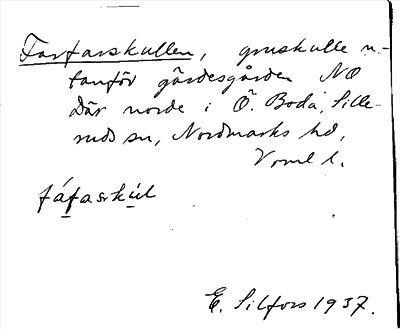 Farfarskullen, gruskulle u-
tanför gärdesgården NO
där norde i Ö. Boda, Sille-
ruds sn, Nordmarks hd,
Verml l.
fáfaskúl
E. Silfors 1937.